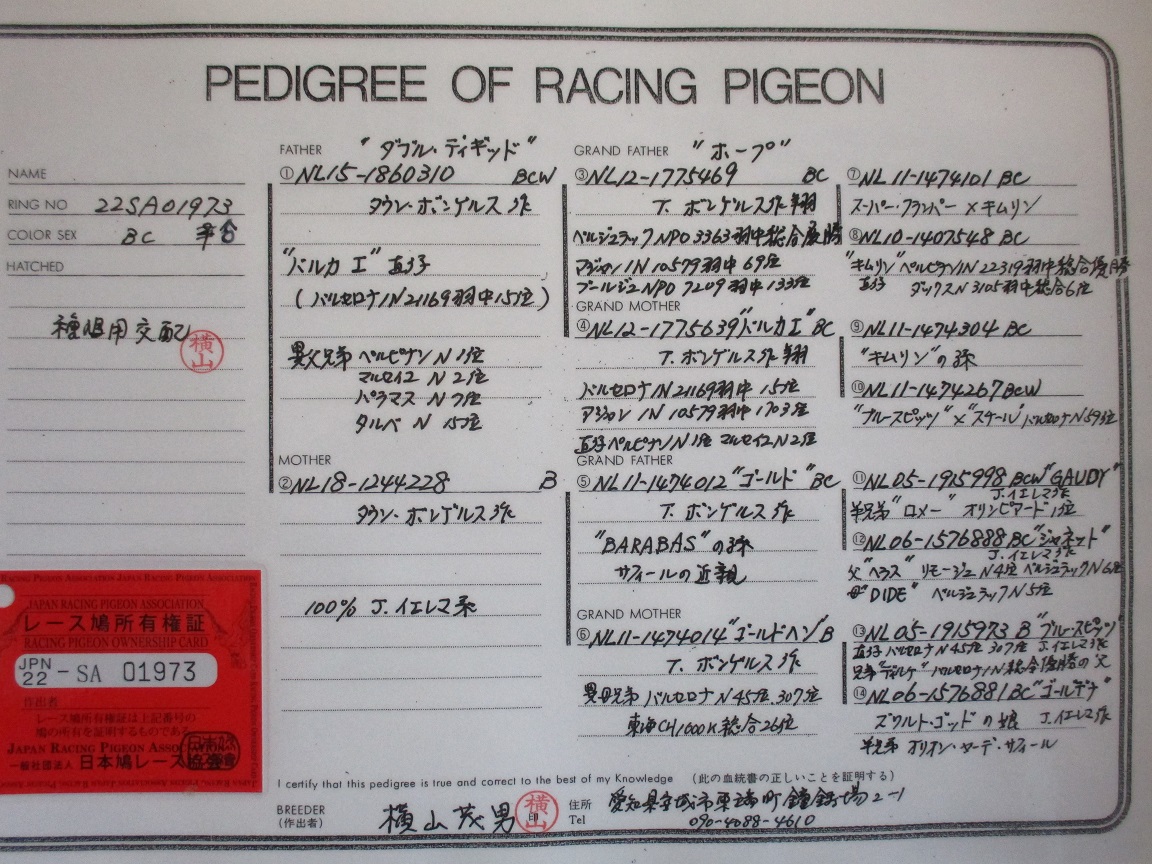 PEDIGREE OF RACING PIGEON
NAME
RING NO 22SA01973
COLOR SEX BC
HATCHED
用交配
横山
FATHER "ダブル・ディギッド"
①NL15-1860310 BCW
タウン・ボンゲルス作
"バルカ I" 直仔
(バルセロナIN 21169羽中15位)
異父兄弟 ペルピナン N 1位
マルセイユ N 2位
パラマス N 7位
タルベ N 15位
MOTHER
②NL18-1244228 B
タウン・ボンゲルス作
100% J.イエレマ系
GRAND FATHER "ホープ"
③NL12-1775469 BC
T. ボンゲルス作翔
ベルジュラックNPO 3363羽中総合優勝
アジャン IN 10579羽中 69位
ブールジュNPO 7209羽中133位
GRAND MOTHER
④NL12-1775639"バルカ I" BC
T. ボンゲルス作翔
バルセロナIN 21169羽中 15位
アジャン IN 10579羽中 1703位
直仔ペルピナンN1位 マルセイユN2位
GRAND FATHER
⑤NL11-1474012"ゴールド"BC
T. ボンゲルス作
"BARABAS"の孫
サフィールの近親
GRAND MOTHER
⑥NL11-1474014"ゴールドヘン"B
T. ボンゲルス作
異母兄弟 バルセロナN45位 307位
東海CH1000K総合26位
⑦NL11-1474101 BC
スーパー・クランパー×キムリン
⑧NL10-1407548 BC
"キムリン"ペルピナンIN 22319羽中総合優勝
直仔 ダックスN 3105羽中総合6位
⑨NL11-1474304 BC
"キムリン"の孫
⑩NL11-1474267 BCW
"ブルースピッツ"×"スケール"バルセロナN593位
⑪NL05-1915998 BCW"GAUDY"
J.イエレマ作
半兄弟"ロメー" オリンピアード1位
⑫NL06-1576888 BC"ジャネット"
J.イエレマ作
父"ヘラス" リモージュN4位 ベルジュラックN6位
母"DIDE" ベルジュラックN5位
⑬NL05-1915973 B"ブルースピッツ"
直仔バルセロナN45位 307位 J.イエレマ作
兄弟"ディルケ" バルセロナIN総合優勝の父
⑭NL06-1576881BC"ゴールデナ"
ズワルト・ゴッドの娘 J.イエレマ作
半兄弟 オリオン・ヤーデ・サフィール
JAPAN RACING PIGEON ASSOCIATION
レース鳩所有権証
RACING PIGEON OWNERSHIP CARD
JPN 22 - SA 01973
作出者
レース鳩所有権証は上記番号の
鳩の所有を証明するものである
JAPAN RACING PIGEON ASSOCIATION
一般社団法人 日本鳩レース協会
I certify that this pedigree is true and correct to the best of my Knowledge (此の血統書の正しいことを証明する)
BREEDER (作出者) 横山茂男 横山 印
住所 愛知県安城市東端町鐘鋳場2-1
Tel 090-4088-4610